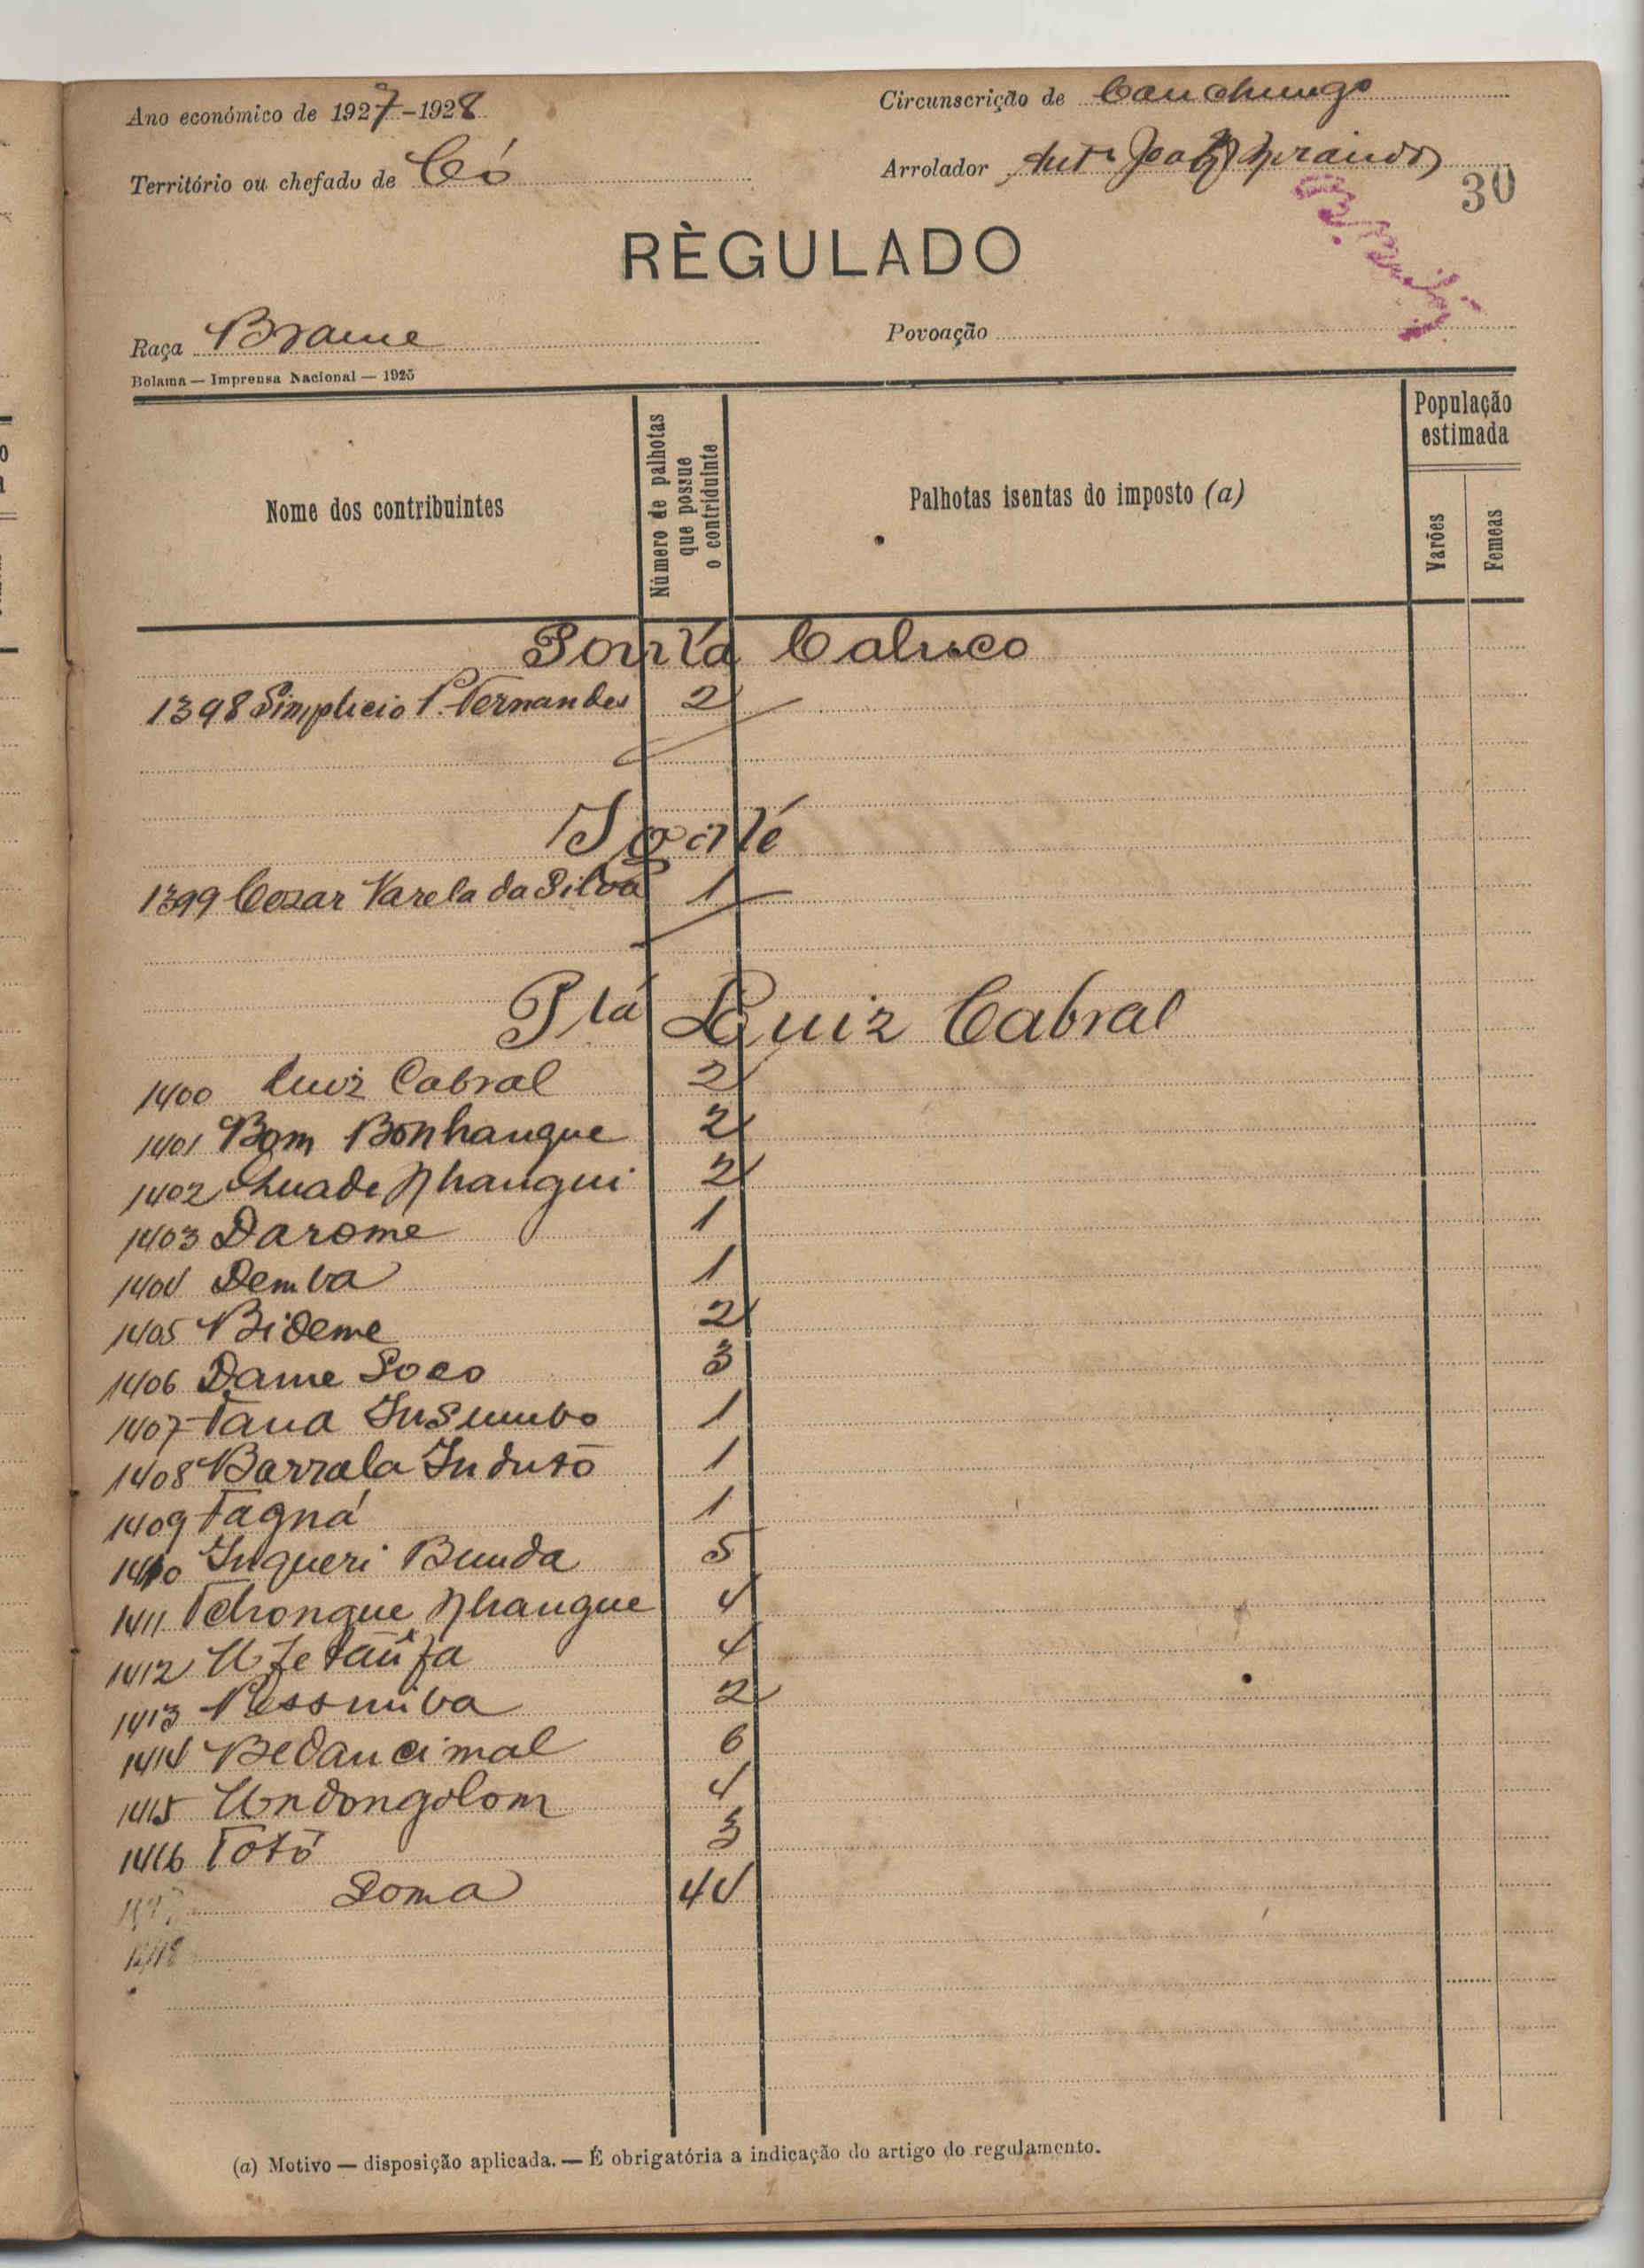 Ano económico de 1927-1928
Circunscrição de Canchungo
Território ou chefado de Có
Arrolador
30
RÈGULADO
Raça Brame
Povoação
Bolama — Imprensa Nacional — 1925
Nome dos contribuintes
Número de palhotas que possue o contriduinte
Palhotas isentas do imposto (a)
População estimada
Varões
Femeas
Ponta Caluco
1398 Simplicio P. Fernandes 2
1399 Cezar Varela da Silva 1
Pta Luiz Cabral
1400 Luiz Cabral 2
1401 Bom Bonhangue 2
1402 Nhangui 2
1403 Darome 1
1404 Demba 1
1405 Bideme 2
1406 Dame Soco 3
1407 Tana Insumbo 1
1408 Barrala Indutō 1
1409 Tagná 1
1410 Ingueri Bunda 5
1411 Tchongue Nhangue 4
1412 4
1413 2
1414 Bedancimal 6
1415 Undongolom 4
1416 Totō 3
Soma 44
1417
1418
(a) Motivo — disposição aplicada. — É obrigatória a indicação do artigo do regulamento.